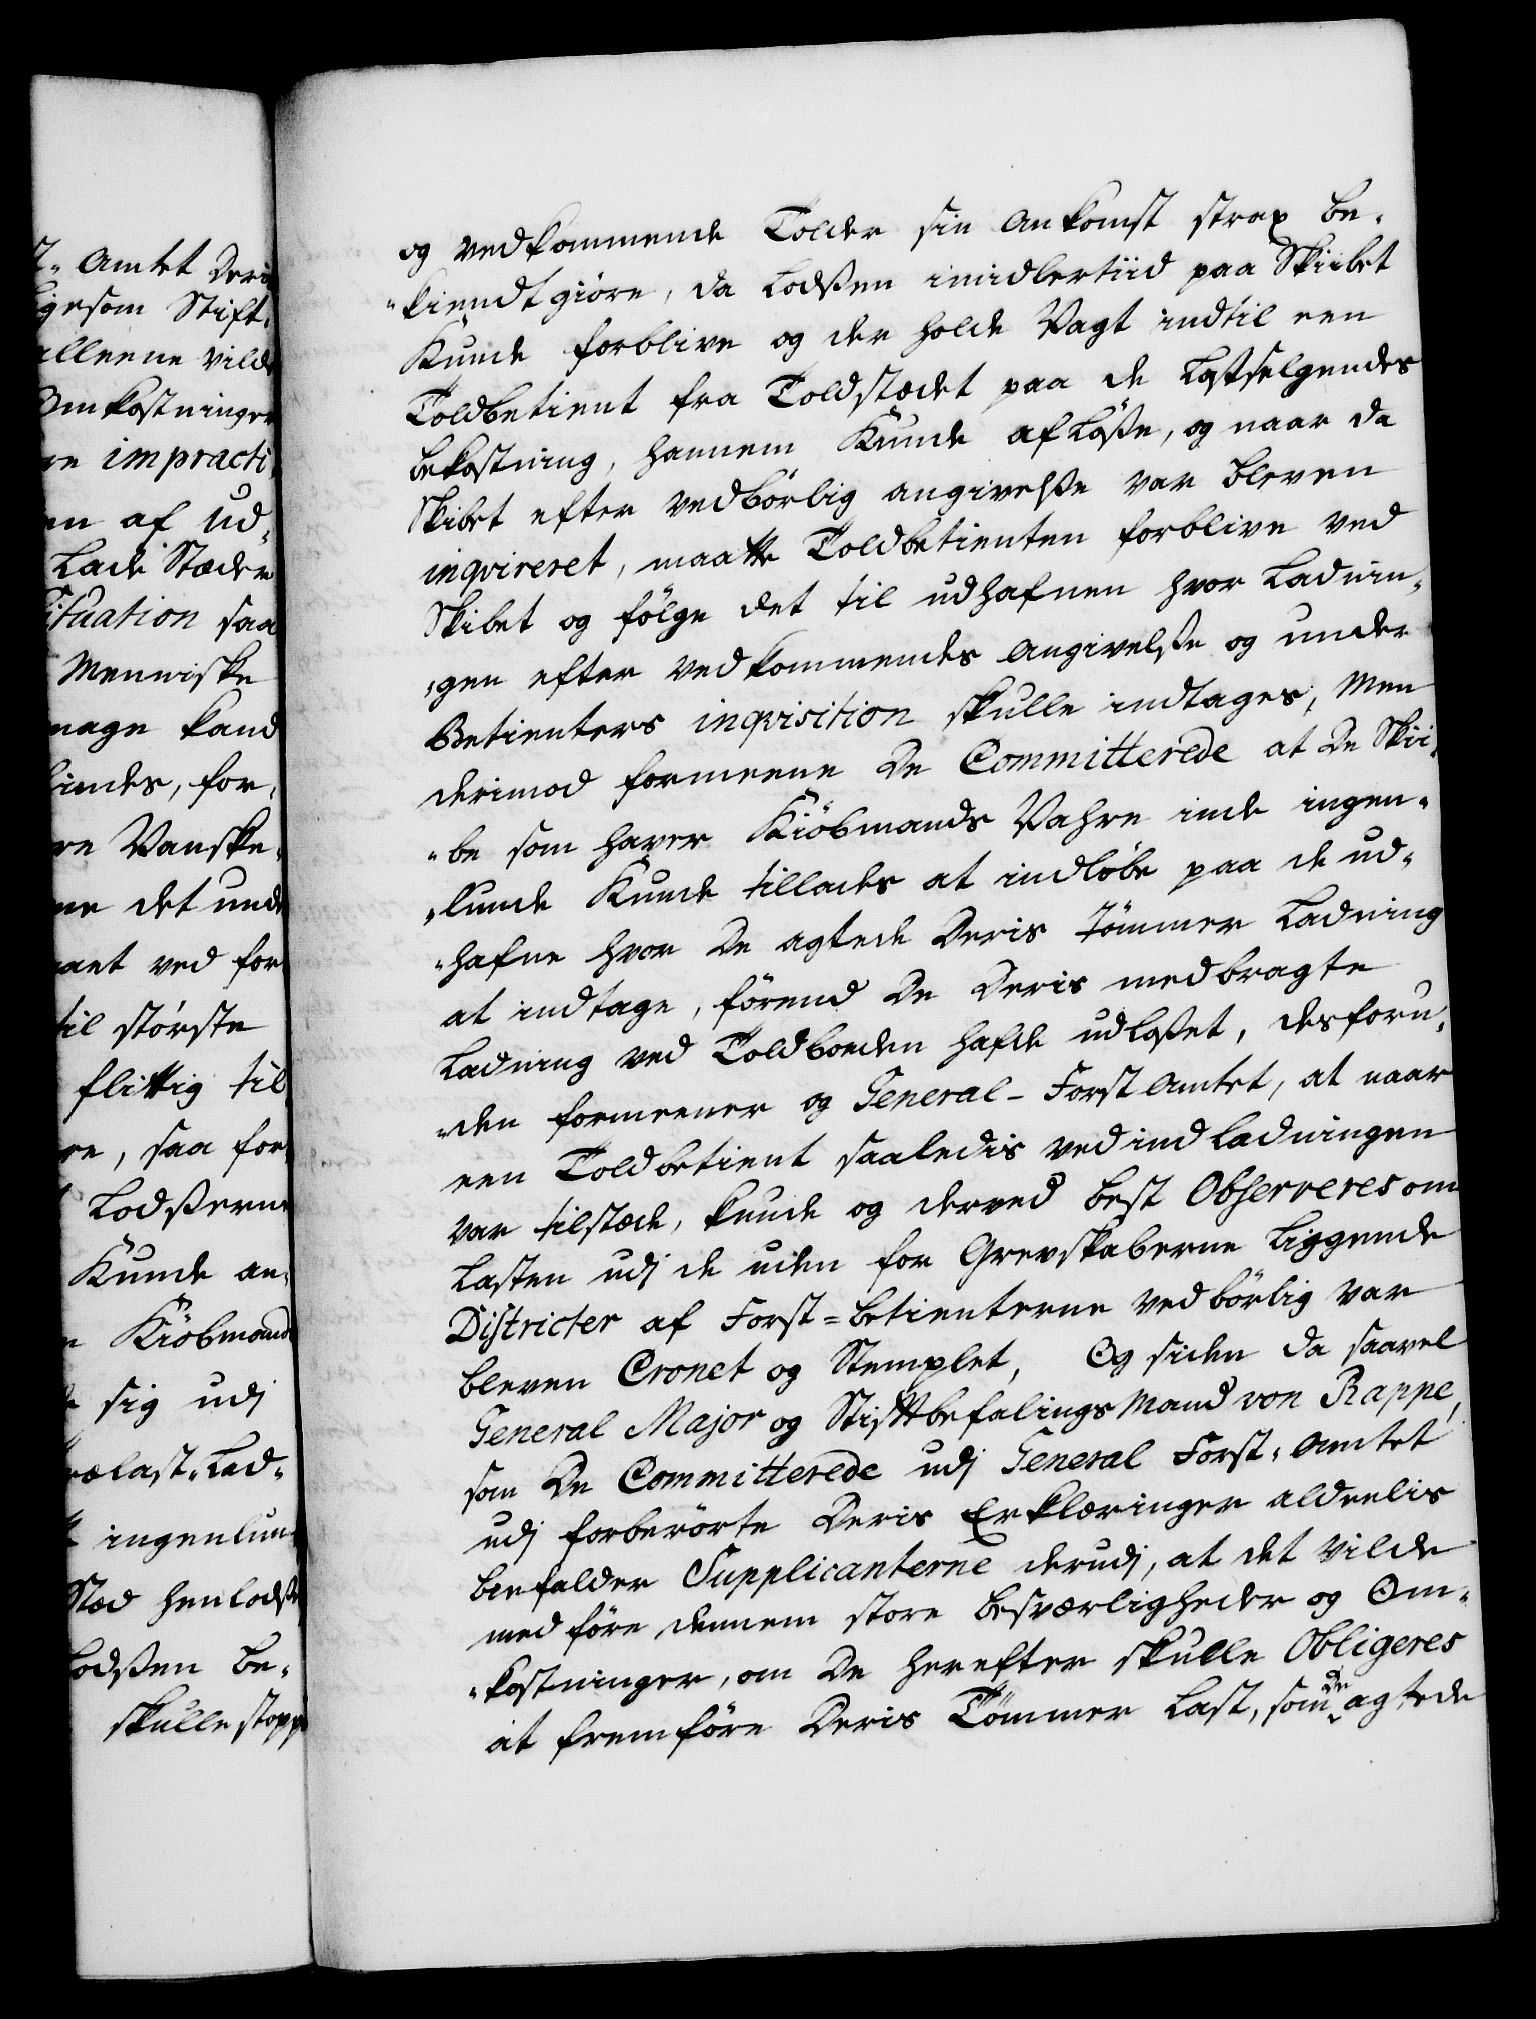 t- Amtet Deri
igesom Stift-
alleene vilde
Omkostninger
re impracti
en af ud-
Lade Stæder
Situation saa
Menniske
mage kand
findes, for-
re Vanske-
ne det unde
aaet ved for
til störste
flittig til
re, saa for
Lodßerne
Kunde an-
Kiöbmands
sig udj
rælast-Lad-
ingenlun
Stæd henlodse
Lodßen be-
skulle stopp
og vedkommende Tolder sin Ankomst strax be-
-kiendtgiöre, da Lodßen imidlertiid paa Skibet
Kunde forblive og der holde Vagt indtil een
Toldbetient fra Toldstædet paa de Lastselgendes
bekostning, hannem Kunde aflöße, og naar da
Skibet efter vedbörlig angivelße var bleven
inqvireret, maatte Toldbetienten forblive ved
Skibet og fölge det til udhafnen hvor Ladnin-
-gen efter vedkommendes Angivelße og under
Betienters inqvisition skulle indtages, Men
derimod formeene De Committerede at De Skii-
-be som haver Kiöbmands Vahre inde ingen-
-lunde Kunde tillades at indlöbe paa de ud-
-hafne hvor De agtede Deris Tömmer Ladning
at indtage, förend De Deris medbragte
Ladning ved Toldboeden hafde udloßet, desforu-
-den formeener og General-Forst Amtet, at naar
een Toldbetient saaledis ved indladningen
var tilstæde, kunde og derved best Observeres om
Lasten udj de uden for Grevskaberne liggende
Districter af Forst-betienterne vedbörlig var
bleven Cronet og Stemplet, Og siden da saavel
General Major og Stiftbefalings Mand von Rappe,
som De Committerede udj General Forst-Amtet
udj forberörte Deris Erklæringer aldeelis
beefalder Supplicanterne derudj, at det vilde
medföre dennem store besværligheder og Om-
-kostninger, om De herefter skulle Obligeres
at fremföre Deris Tömmer Last, som de agtede